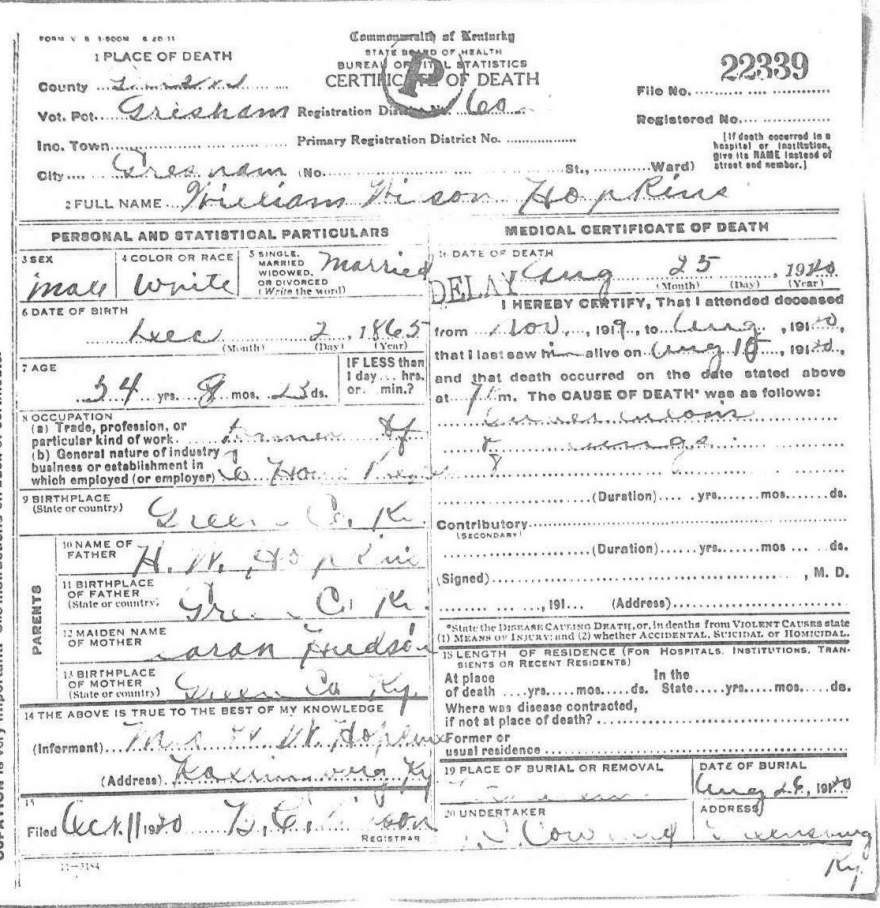 FORM V. S. 1-500M 6 20 11
Commonwealth of Kentucky
STATE BOARD OF HEALTH
BUREAU OF VITAL STATISTICS
CERTIFICATE OF DEATH
P
22339
1 PLACE OF DEATH
County
Vot. Pct. Gresham Registration District No. 60
File No.
Registered No.
Inc. Town Primary Registration District No.
[If death occurred in a hospital or institution, give its NAME instead of street and number.]
City Gresham (No. St., Ward)
2 FULL NAME William Wi son Hopkins
PERSONAL AND STATISTICAL PARTICULARS
3 SEX Male
4 COLOR OR RACE White
5 SINGLE, MARRIED WIDOWED, OR DIVORCED (Write the word) Married
6 DATE OF BIRTH
Dec 2, 1865
(Month) (Day) (Year)
7 AGE
54 yrs. 8 mos. 23 ds.
IF LESS than 1 day... hrs. or min.?
8 OCCUPATION
(a) Trade, profession, or particular kind of work
(b) General nature of industry business or establishment in which employed (or employer)
9 BIRTHPLACE
(State or country) Green Co. Ky.
PARENTS
10 NAME OF FATHER H. W. Hopkins
11 BIRTHPLACE OF FATHER (State or country) Green Co. Ky.
12 MAIDEN NAME OF MOTHER Sarah Hudson
13 BIRTHPLACE OF MOTHER (State or country) Green Co Ky.
14 THE ABOVE IS TRUE TO THE BEST OF MY KNOWLEDGE
(Informant) Mrs W. W. Hopkins
(Address) Ky
15
Filed Oct. 11 1920
REGISTRAR
11-3184
MEDICAL CERTIFICATE OF DEATH
16 DATE OF DEATH
DELAY Aug 25, 1920
(Month) (Day) (Year)
I HEREBY CERTIFY, That I attended deceased
from Nov, 1919, to Aug, 1920,
that I last saw him alive on Aug 15, 1920,
and that death occurred on the date stated above
at 7 m. The CAUSE OF DEATH* was as follows:
lungs
(Duration) yrs. mos. ds.
Contributory
(SECONDARY)
(Duration) yrs. mos. ds.
(Signed) , M. D.
, 191 (Address)
*State the DISEASE CAUSING DEATH, or, in deaths from VIOLENT CAUSES state
(1) MEANS OF INJURY; and (2) whether ACCIDENTAL, SUICIDAL or HOMICIDAL.
18 LENGTH OF RESIDENCE (FOR HOSPITALS, INSTITUTIONS, TRANSIENTS OR RECENT RESIDENTS)
At place of death yrs. mos. ds. In the State yrs. mos. ds.
Where was disease contracted,
if not at place of death?
Former or
usual residence
19 PLACE OF BURIAL OR REMOVAL
DATE OF BURIAL
Aug 26, 1920
20 UNDERTAKER
ADDRESS
Greensburg
Ky.